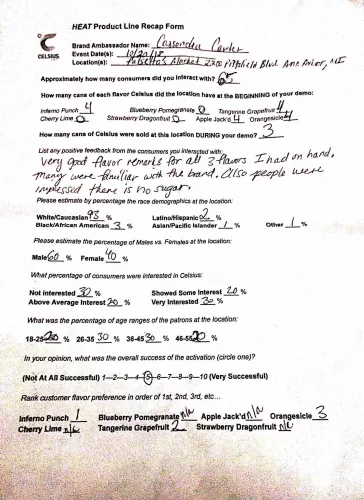 HEAT Product Line Recap Form
CELSIUS
Brand Ambassador Name: Cassandra Carter
Event Date(s): 10/20/18
Location(s): Market 2300 Blvd Ann Arbor, MI
Approximately how many consumers did you interact with? 65
How many cans of each flavor Celsius did the location have at the BEGINNING of your demo:
Inferno Punch 4 Blueberry Pomegranate 0 Tangerine Grapefruit 4
Cherry Lime 0 Strawberry Dragonfruit 0 Apple Jack'd 4 Orangesicle 4
How many cans of Celsius were sold at this location DURING your demo? 3
List any positive feedback from the consumers you interacted with:
Very good flavor remarks for all 3 flavors I had on hand.
many were familiar with the band. Also people were
impressed there is no sugar.
Please estimate by percentage the race demographics at the location:
White/Caucasian 93 % Latino/Hispanic 2 %
Black/African American 3 % Asian/Pacific Islander 1 % Other 1 %
Please estimate the percentage of Males vs. Females at the location:
Male 60 % Female 40 %
What percentage of consumers were interested in Celsius:
Not interested 30 % Showed Some Interest 20 %
Above Average Interest 20 % Very Interested 30 %
What was the percentage of age ranges of the patrons at the location:
18-25 20 % 26-35 30 % 36-45 30 % 46-55 20 %
In your opinion, what was the overall success of the activation (circle one)?
(Not At All Successful) 1---2---3---4---5---6---7---8---9---10 (Very Successful)
Rank customer flavor preference in order of 1st, 2nd, 3rd, etc...
Inferno Punch 1 Blueberry Pomegranate n/a Apple Jack'd n/a Orangesicle 3
Cherry Lime n/a Tangerine Grapefruit 2 Strawberry Dragonfruit n/a